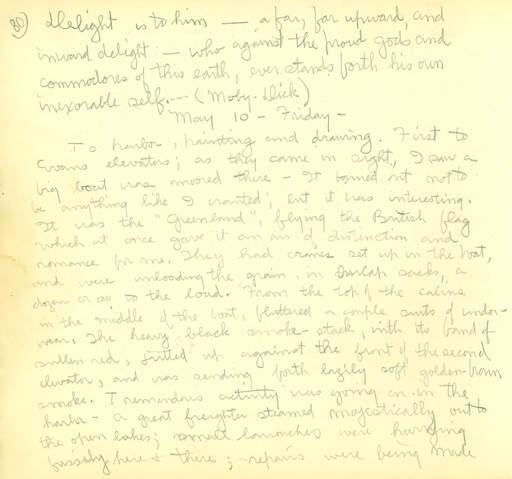 38) Delight is to him — a far, far upward, and
inward delight — who against the proud gods and
commodores of this earth, ever stands forth his own
inexorable self.--- (Moby-Dick)
May 10 - Friday -
To harbor, painting and drawing. First to
Evans elevators; as they came in sight, I saw a
big boat was moored there - It turned out not to
be anything like I wanted, but it was interesting.
It was the "Greenland", flying the British flag
which at once gave it an air of distinction and
romance for me. They had cranes set up in the boat,
and were unloading the grain, in burlap sacks, a
dozen or so to the load. From the top of the cabins
in the middle of the boat, fluttered a couple suits of under-
wear. The heavy black smoke-stack, with its band of
sullen red, jutted up against the front of the second
elevator, and was sending forth lazily soft golden-brown
smoke. Tremendous activity was going on in the
harbor - a great freighter steamed majestically out to
the open lakes; small launches were hurrying
fussily here & there; - repairs were being made